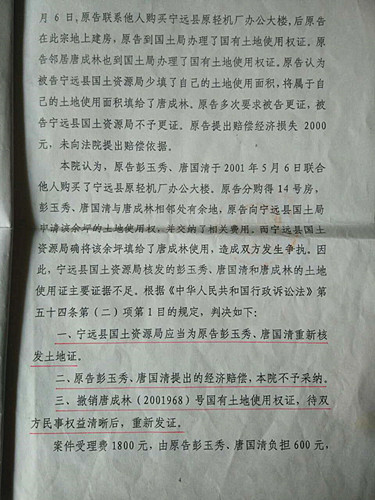 月 6 日,原告联系他人购买宁远县原轻机厂办公大楼,后原告
在此宗地上建房,原告到国土局办理了国有土地使用权证。原
告邻居唐成林也到国土局办理了国有土地使用权证。原告认为
被告宁远县国土资源局少填了自己的土地使用面积,将属于自
己的土地使用面积填给了唐成林。原告多次要求被告更证,被
告宁远县国土资源局不予更证。原告提出赔偿经济损失 2000
元,未向法院提出赔偿依据。
本院认为,原告彭玉秀、唐国清于 2001 年 5 月 6 日联合
他人购买了宁远县原轻机厂办公大楼。原告分购得 14 号房,
彭玉秀、唐国清与唐成林相邻处有余地,原告向宁远县国土局
申请该余坪的土地使用权,并交纳了相关费用。而宁远县国土
资源局确将该余坪填给了唐成林使用,造成双方发生争执。因
此,宁远县国土资源局核发的彭玉秀、唐国清和唐成林的土地
使用证主要证据不足。根据《中华人民共和国行政诉讼法》第
五十四条第(二)项第 1 目的规定,判决如下:
一、宁远县国土资源局应当为原告彭玉秀、唐国清重新核
发土地证。
二、原告彭玉秀、唐国清提出的经济赔偿,本院不予采纳。
三、撤销唐成林(2001968)号国有土地使用权证,待双
方民事权益清晰后,重新发证。
案件受理费 1800 元,由原告彭玉秀、唐国清负担 600 元,
4